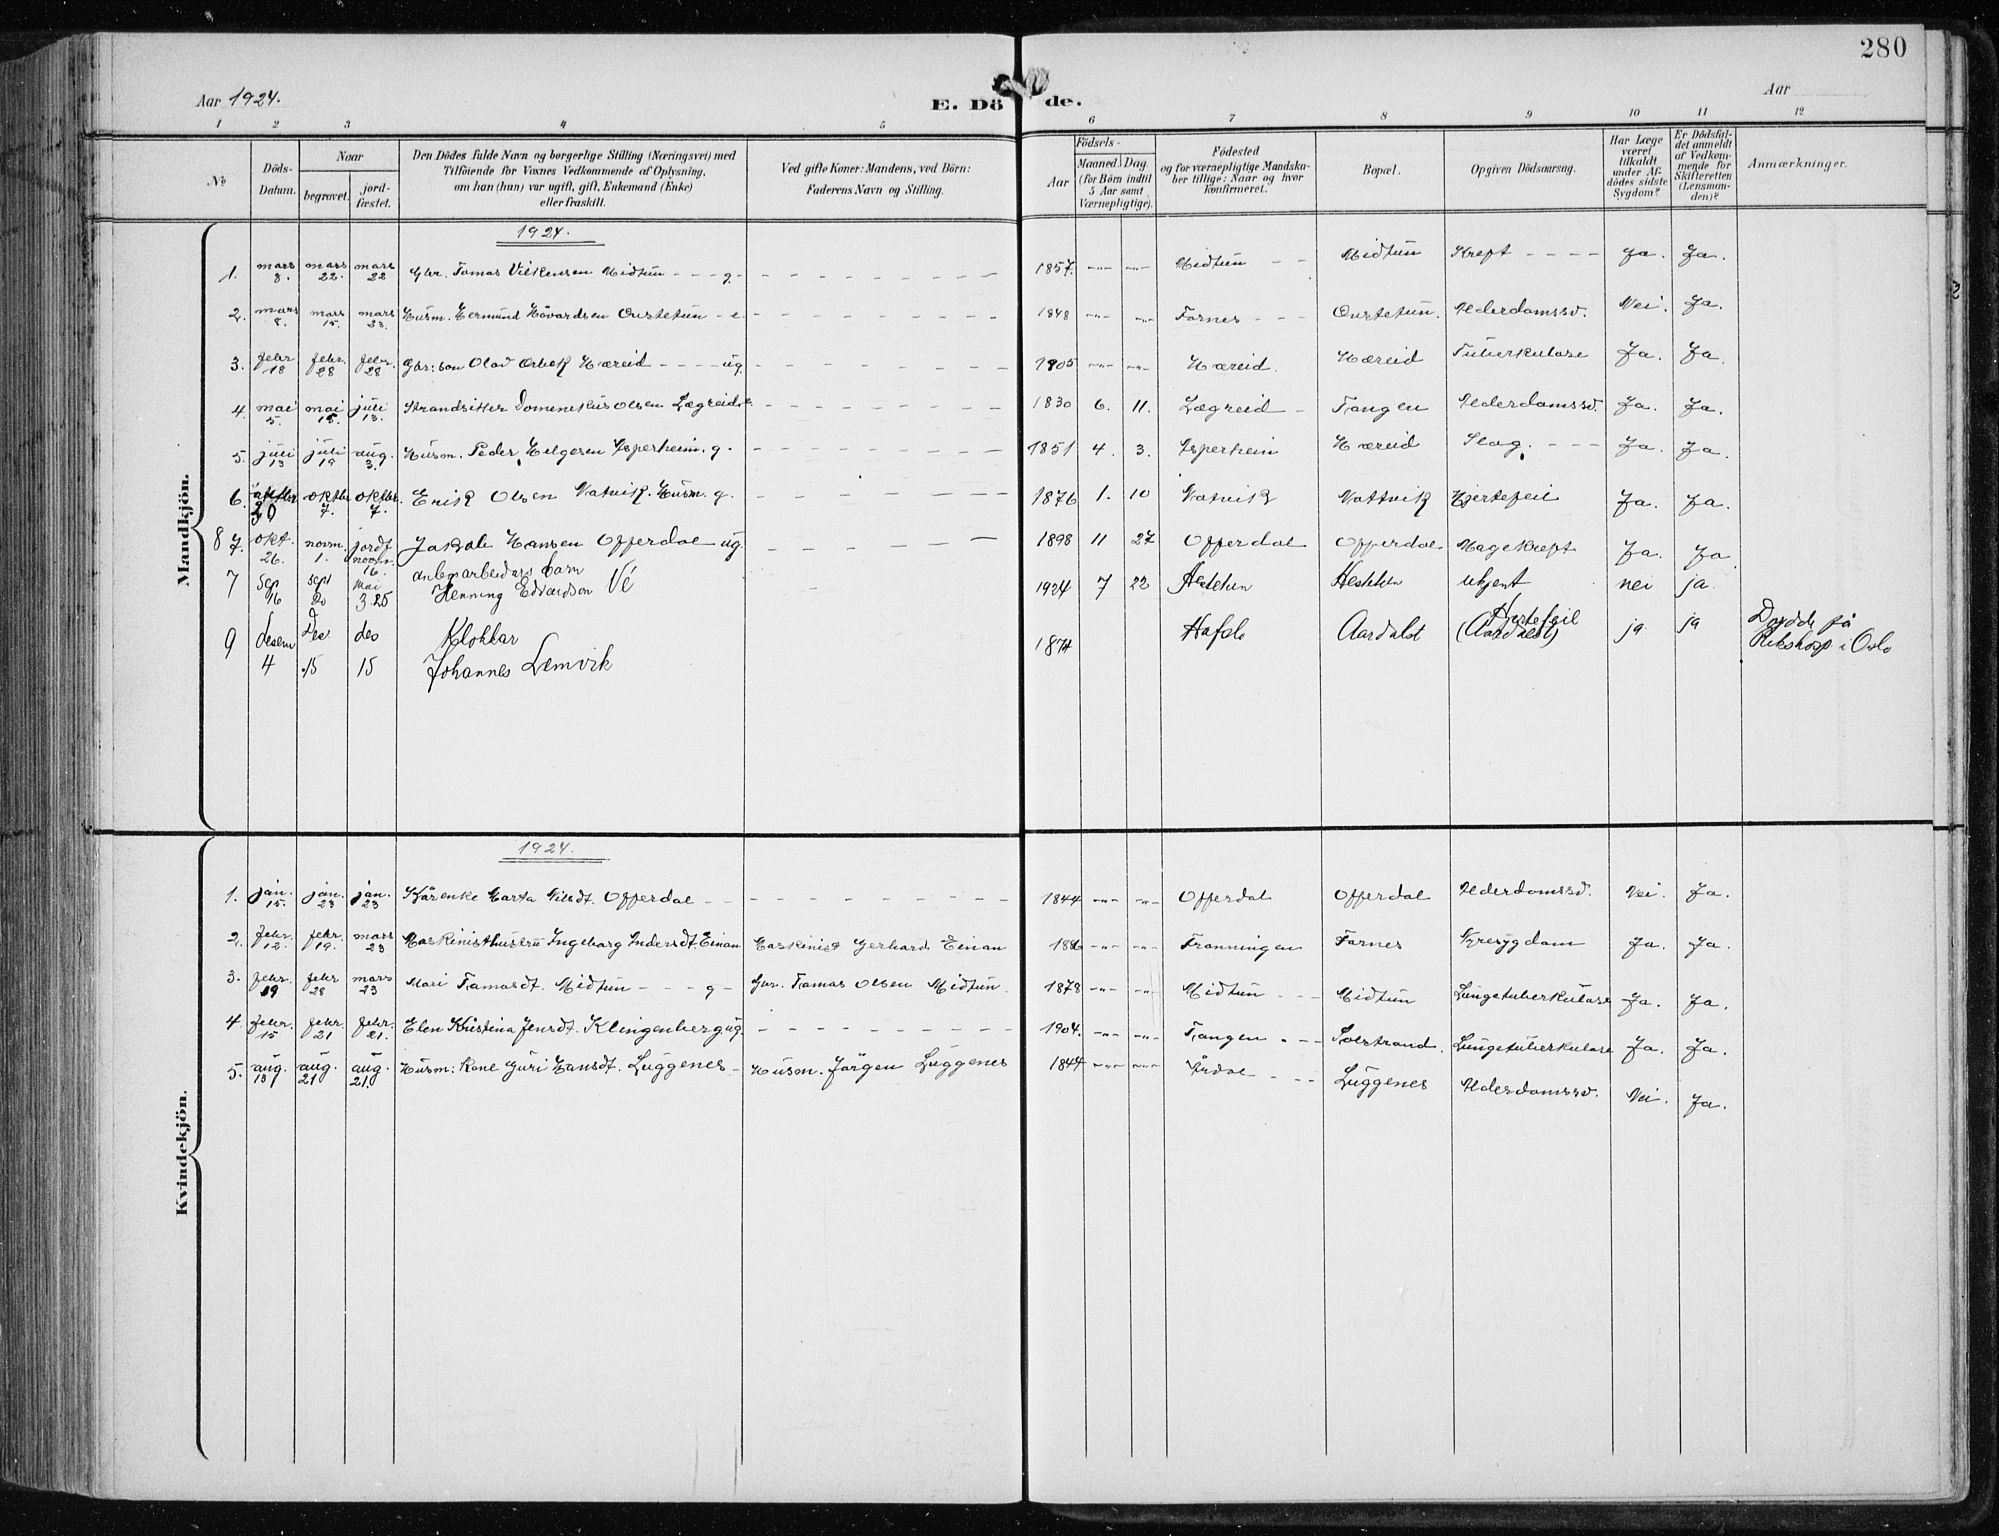 280
Aar 1924.
E. Dö de.
Aar
1 2 3 4 5 6 7 8 9 10 11 12
No
Döds-Datum.
Naar
begravet.
jord-fæstet.
Den Dödes fulde Navn og borgerlige Stilling (Næringsvei) med
Tilföiende for Voxnes Vedkommende af Oplysning,
om han (hun) var ugift, gift, Enkemand (Enke)
eller fraskilt.
Ved gifte Koner: Mandens, ved Börn:
Faderens Navn og Stilling.
Födsels-
Aar
Maaned. Dag.
(for Börn indtil
5 Aar samt
Værnepligtige).
Födested
og for værnepligtige Mandska-
ber tillige: Naar og hvor
konfirmeret.
Bopæl.
Opgiven Dödsaarsag.
Har Læge
været
tilkaldt
under Af-
dödes sidste
Sygdom?
Er Dödsfal-
det anmeldt
af Vedkom-
mende for
Skifteretten
(Lensman-
den)?
Anmærkninger.
Mandkjön.
1924.
1. mars 8. mars 22. mars 22 Gbr. Tomas Vilkensen Midtun - - - g. 1857. Midtun Midtun Kreft Ja. Ja.
2. mars 8. mars 15. mars 23. Husm. Hermund Hovardsen Oustetun - e. 1848 Farnes Oustetun. Alderdomssv. Nei. Ja.
3. febr 18 febr. 28 febr. 28 Gbr: son Olav Orbek Hæreid - - - - ug. 1905 Hæreid. Hæreid Tuberkulose Ja. Ja.
4. mai 5. mai 15. juli 13. Strandsitter Domenikus Olsen Lægreid e. 1830 6. 11. Lægreid Tangen Alderdomssv. Ja. Ja.
5. juli 13 juli 19 aug. 3. Husm. Peder Helgesen Asperheim. g. 1851 4. 3. Asperheim Hæreid Slag. Ja. Ja.
6. 30 oktbr 7. oktbr. 7. Erik Olsen Natvik. Husm. g. 1876 1. 10 Natvik Nattvik Hjertefeil Ja. Ja.
8 7. okt. 26. novm. 1. jordf novm. 16 Jakob Hansen Offerdal ug. 1898 11 27 Offerdal Offerdal Magekreft Ja. Ja
7 Sep 16 sept 20 mai 3.25 anlegsarbeidars barn
Henning Edvardson Vé 1924 7 22 ukjent nei ja.
9 desem 4 Des 15 des 15 Klokkar
Johannes Lemvik 1874 Hafslo Aardalst Hjertefeil (Aardalst) ja ja Döydde på
Rikshosp i Oslo
Kvindekjön.
1924.
1. jan. 15. jan. 23 jan. 23 Kårenke Marta Nilsdt. Offerdal 1844 Offerdal Offerdal Alderdomssv. Nei. Ja.
2. febr. 12. febr. 19. mars 23 Maskinisthustru Ingeborg Andersdt. Einan Maskinist Gerhard Einan Fronningen Farnes Nyresygdom Ja. Ja.
3. febr. 19 febr 28 mars 23 Mari Tomasdt. Midtun - - - g - Gbr. Tomas Olsen Midtun. 1878 Midtun Midtun Lungetuberkulose Ja. Ja.
4. febr. 15 febr. 21 febr. 21. Elen Kristina Jensdt. Klingenberg ug. 1904. Tangen Lungetuberkulose Ja. Ja.
5. aug. 13 aug. 21 aug. 21. Husm: kone Guri Hansdt. Luggenes - Husm. Jörgen Luggenes 1844 Årdal Luggenes Alderdomssv. Nei. Ja.